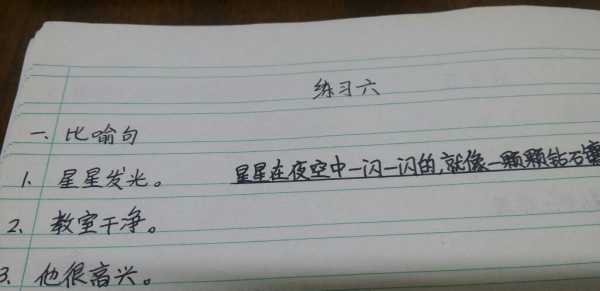 练习六
一、比喻句
1、星星发光。 星星在夜空中一闪一闪的,就像一颗颗钻石镶
2、教室干净。
3、他很高兴。